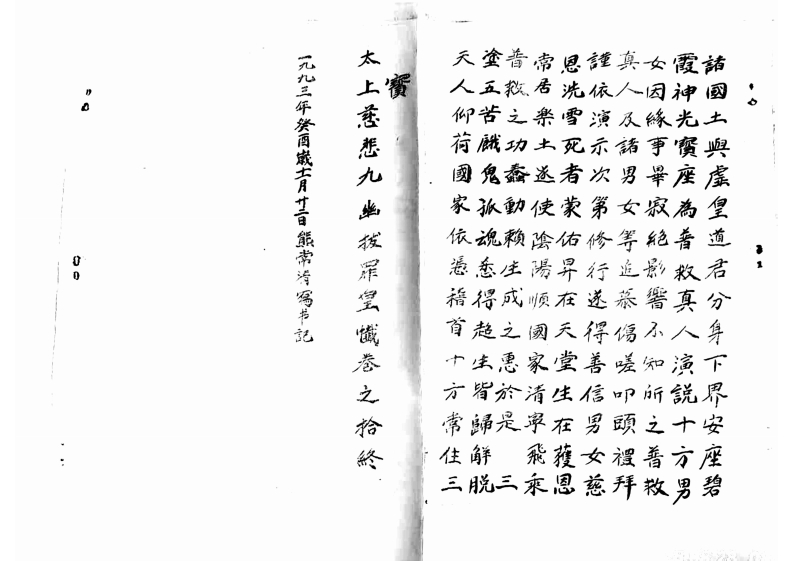 諸國土與虛皇道君分身下界安座碧
霞神光寶座為普救真人演説十方男
女因緣事畢寂絕影響不知所之普救
真人及諸男女等追慕傷嗟叩頭禮拜
謹依演示次第修行遂得善信男女慈
恩洗雪死者蒙佑昇在天堂生在獲恩
常居樂土遂使陰陽順國家清寧飛乘
普救之功蠢動賴生成之惠於是三
塗五苦餓鬼孤魂悉得超生皆歸解脱
天人仰荷國家依憑稽首十方常住三
寶
太上慈悲九幽拔罪皇懺卷之拾終
一九九三年癸酉歲十一月廿二日熊常清寫书記